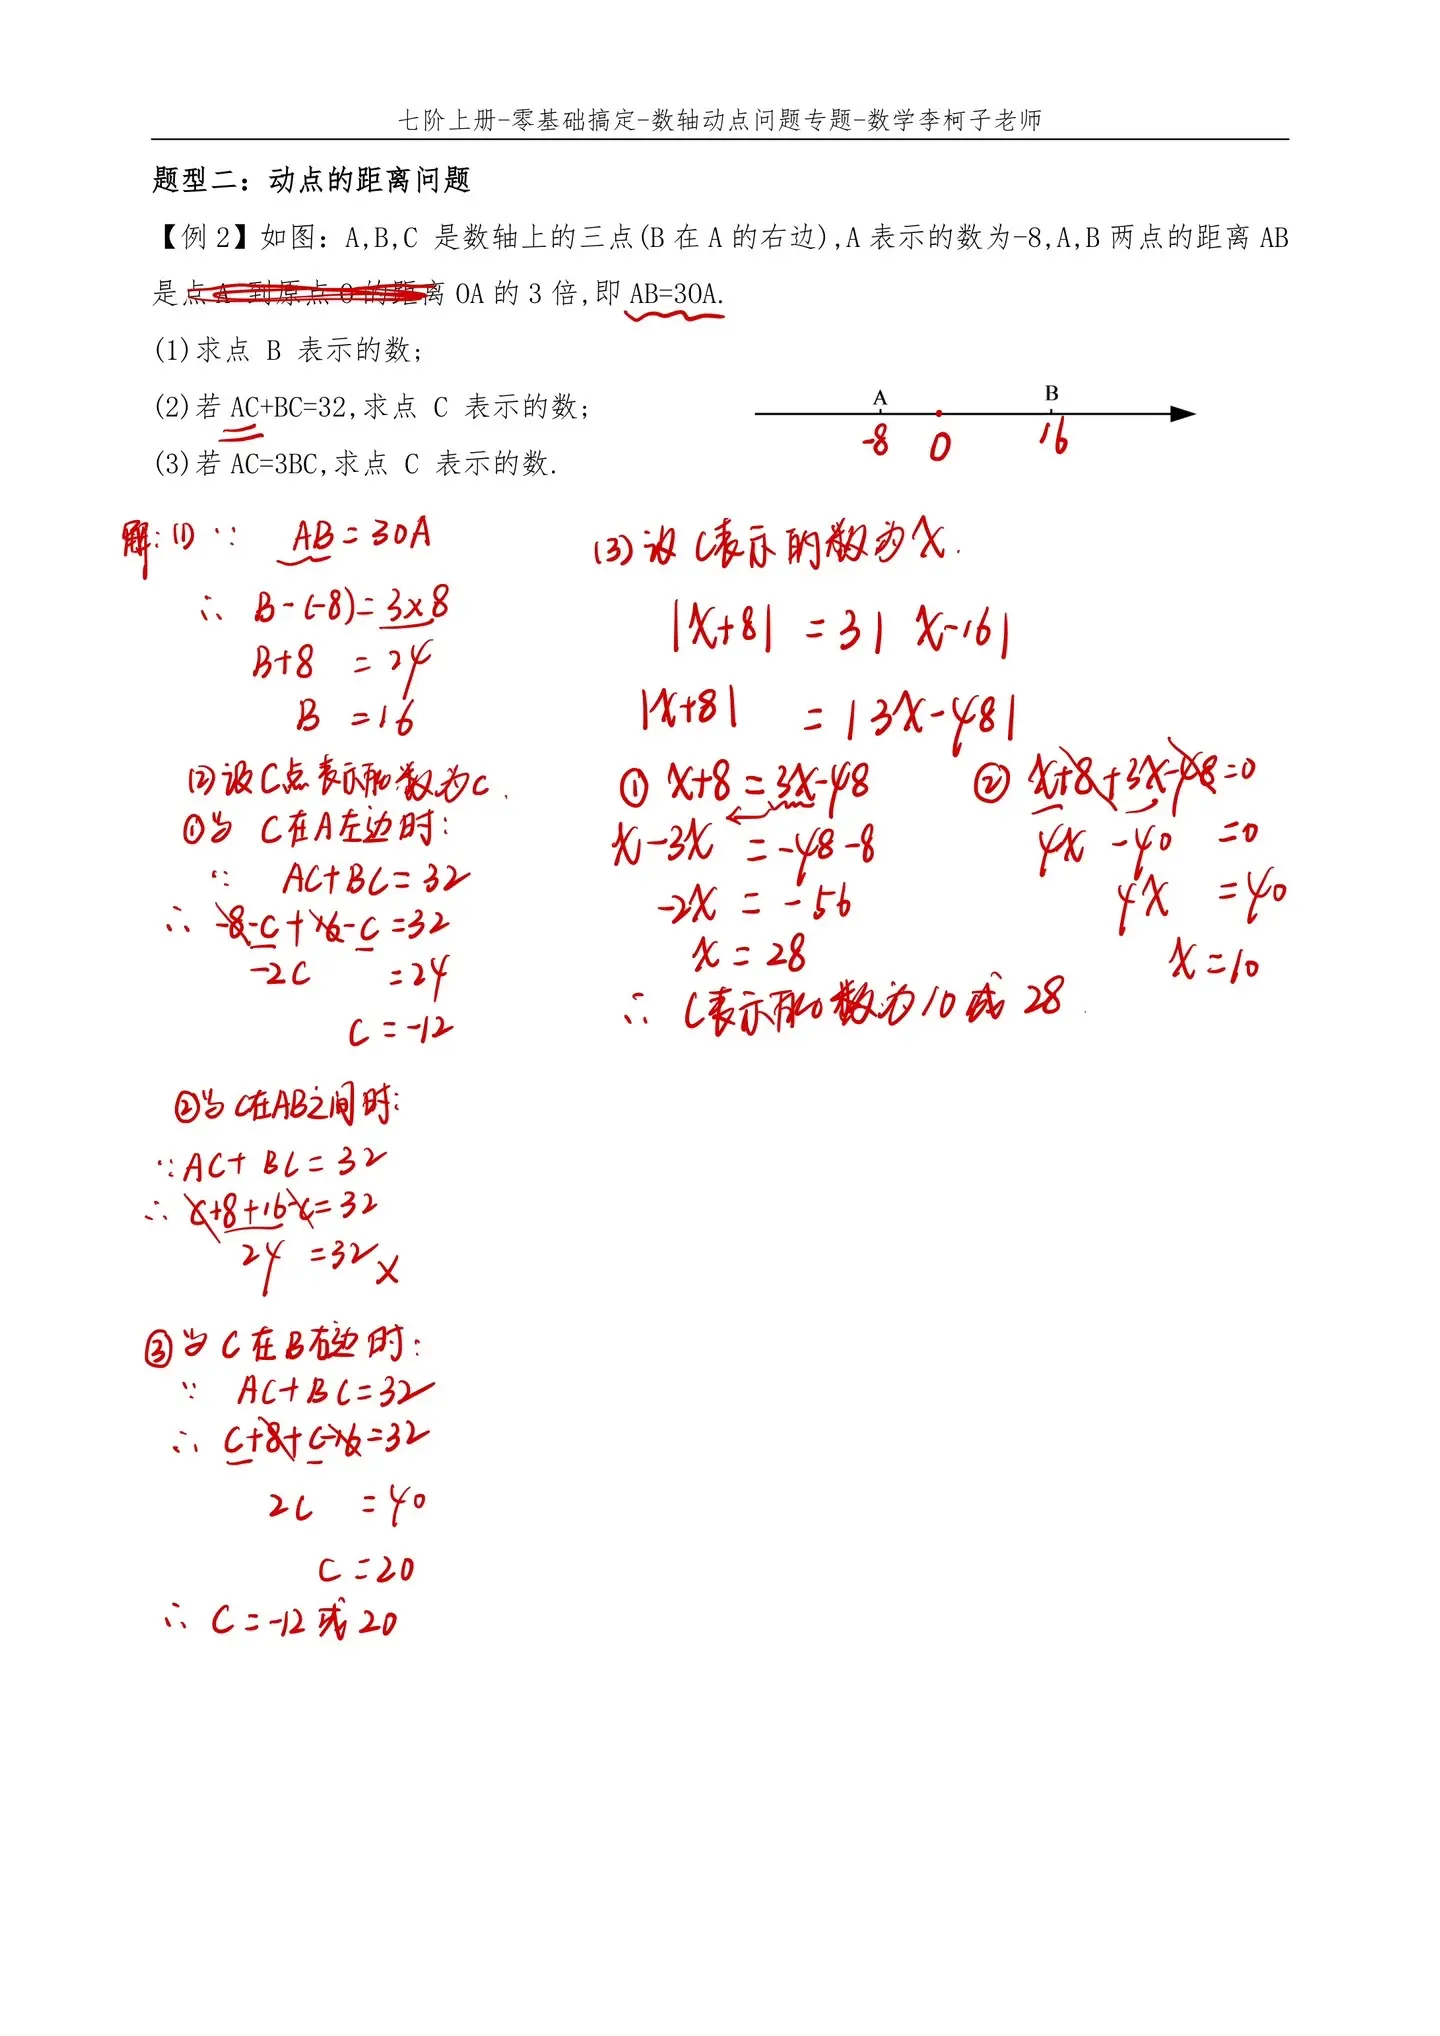 七阶上册-零基础搞定-数轴动点问题专题-数学李柯子老师
题型二：动点的距离问题
【例2】如图：A,B,C 是数轴上的三点(B在A的右边),A表示的数为-8,A,B两点的距离AB
是点A 到原点O的距离OA的3倍,即AB=3OA.
(1)求点 B 表示的数;
(2)若AC+BC=32,求点 C 表示的数;
(3)若AC=3BC,求点 C 表示的数.
A B
-8 0 16
解:(1) ∵ AB=3OA
∴ B-(-8)=3×8
B+8 =24
B =16
(2)设C点表示的数为C.
①当 C在A左边时:
∵ AC+BC=32
∴ -8-C+16-C=32
-2C =24
C=-12
②当C在AB之间时:
∵AC+BC=32
∴ C+8+16-C=32
24 =32 ×
③当C在B右边时:
∵ AC+BC=32
∴ C+8+C-16=32
2C =40
C=20
∴ C=-12或20
(3)设C表示的数为x.
|x+8| =3| x-16|
|x+8| =|3x-48|
① x+8=3x-48
x-3x =-48-8
-2x =-56
x=28
② x+8+3x-48=0
4x -40 =0
4x =40
x=10
∴ C表示的数为10或28.